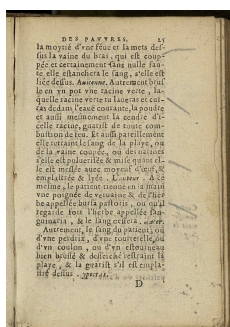 DES PAVVRES. 25
la moytié d'vne féue et la mets des-
sus la vaine du bras, qui est coup-
pée et certainement sans nulle fau-
te elle estanchera le sang, s'elle est
liée dessus. Auicenne. Autrement brus-
le en vn pot vne racine verte, la-
quelle racine verte tu laueras et cui-
ras dedans l'eaue courante, la poudre
et aussi mesmement la cendre d'i-
celle racine, guarist de toute com-
bustion de feu. Et aussi pareillement
elle retraint le sang de la playe, ou
de la vaine coupée, ou des narines
s'elle est puluerisée & mise quant el-
le est meslée auec moyeuf d'œuf, &
emplastrée & lyée. L'auteur. A ce
mesme, le patient tienne en sa main
vne poignée de veruaine & de l'her-
be appellée bursa pastoris, ou qu'il
regarde soit l'herbe appellée san-
guinaria, & le sang cessera.
Autrement, le sang du patient, ou
d'vne perdrix, d'vne tourterelle, ou
d'vn coulon, ou d'vn estourneau
bien bruslé & desseiché restraint la
playe, & la guarist s'il est empla-
stré dessus. Ypocras.
D